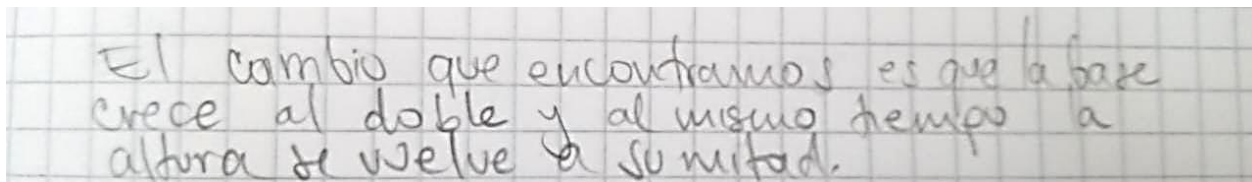 El cambio que encontramos es que la base
crece al doble y al mismo tiempo la
altura se vuelve a su mitad.